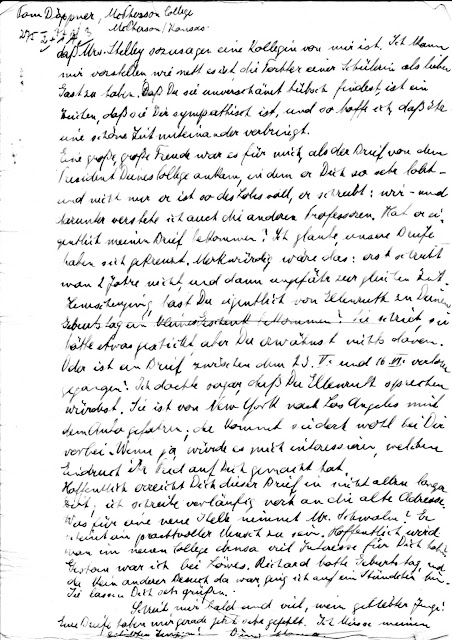 Tom Döppner, McPherson College
McPherson/Kansas
daß Mrs. Shelley sozusagen eine Kollegin von mir ist. Ich kann
mir vorstellen wie nett es ist die Tochter einer Schülerin als lieben
Gast zu haben. Daß Du sie unverschämt hübsch findest ist ein
Zeichen, daß sie Dir sympathisch ist, und so hoffe ich, daß Ihr
eine schöne Zeit miteinander verbringt.
Eine große, große Freude war es für mich, als der Brief von dem
President Deines College ankam, in dem er Dich so sehr lobt -
und nicht nur er ist so des Lobes voll, er schreibt: wir - und
herunter verstehe ich auch die anderen Professoren. Hat er ei-
gentlich meinen Brief bekommen? Ich glaube, unsere Briefe
haben sich gekreuzt. Merkwürdig wäre das: erst schreibt
man 2 Jahre nicht, und dann ungefähr zur gleichen Zeit.
hast Du eigentlich von Ellenruth zu Deinem
Geburtstag ein kleines Geschenk bekommen? Sie schrieb, sie
hätte etwas geschickt aber Du erwähnst nichts davon.
Oder ist ein Brief zwischen dem 23. V. und 16. VI. verloren
gegangen? Ich dachte sogar, daß Du Ellenruth sprechen
würdest. Sie ist von New York nach Los Angeles mit
dem Auto gefahren; da kommt sie dort wohl bei Dir
vorbei. Wenn ja, würde es mich interessieren, welchen
Eindruck Ihr Kind auf Dich gemacht hat.
Hoffentlich erreicht Dich dieser Brief in nicht allzu langer
Zeit; ich schreibe vorläufig noch an die alte Adresse.
Was für eine neue Stelle nimmt Mr. Schwalm? Er
scheint ein prachtvoller Mensch zu sein. Hoffentlich wird
man im neuen College ebenso viel Interesse für Dich haben.
Gestern war ich bei Löwes. Richard hatte Geburtstag, und
da kein anderer Besuch da war, ging ich auf ein Stündchen hin.
Sie lassen Dich sehr grüßen.
Schreib mir bald und viel, mein geliebter Junge!
Eure Briefe haben mir gerade jetzt sehr gefehlt. Ich küsse meinen
geliebten Jungen!